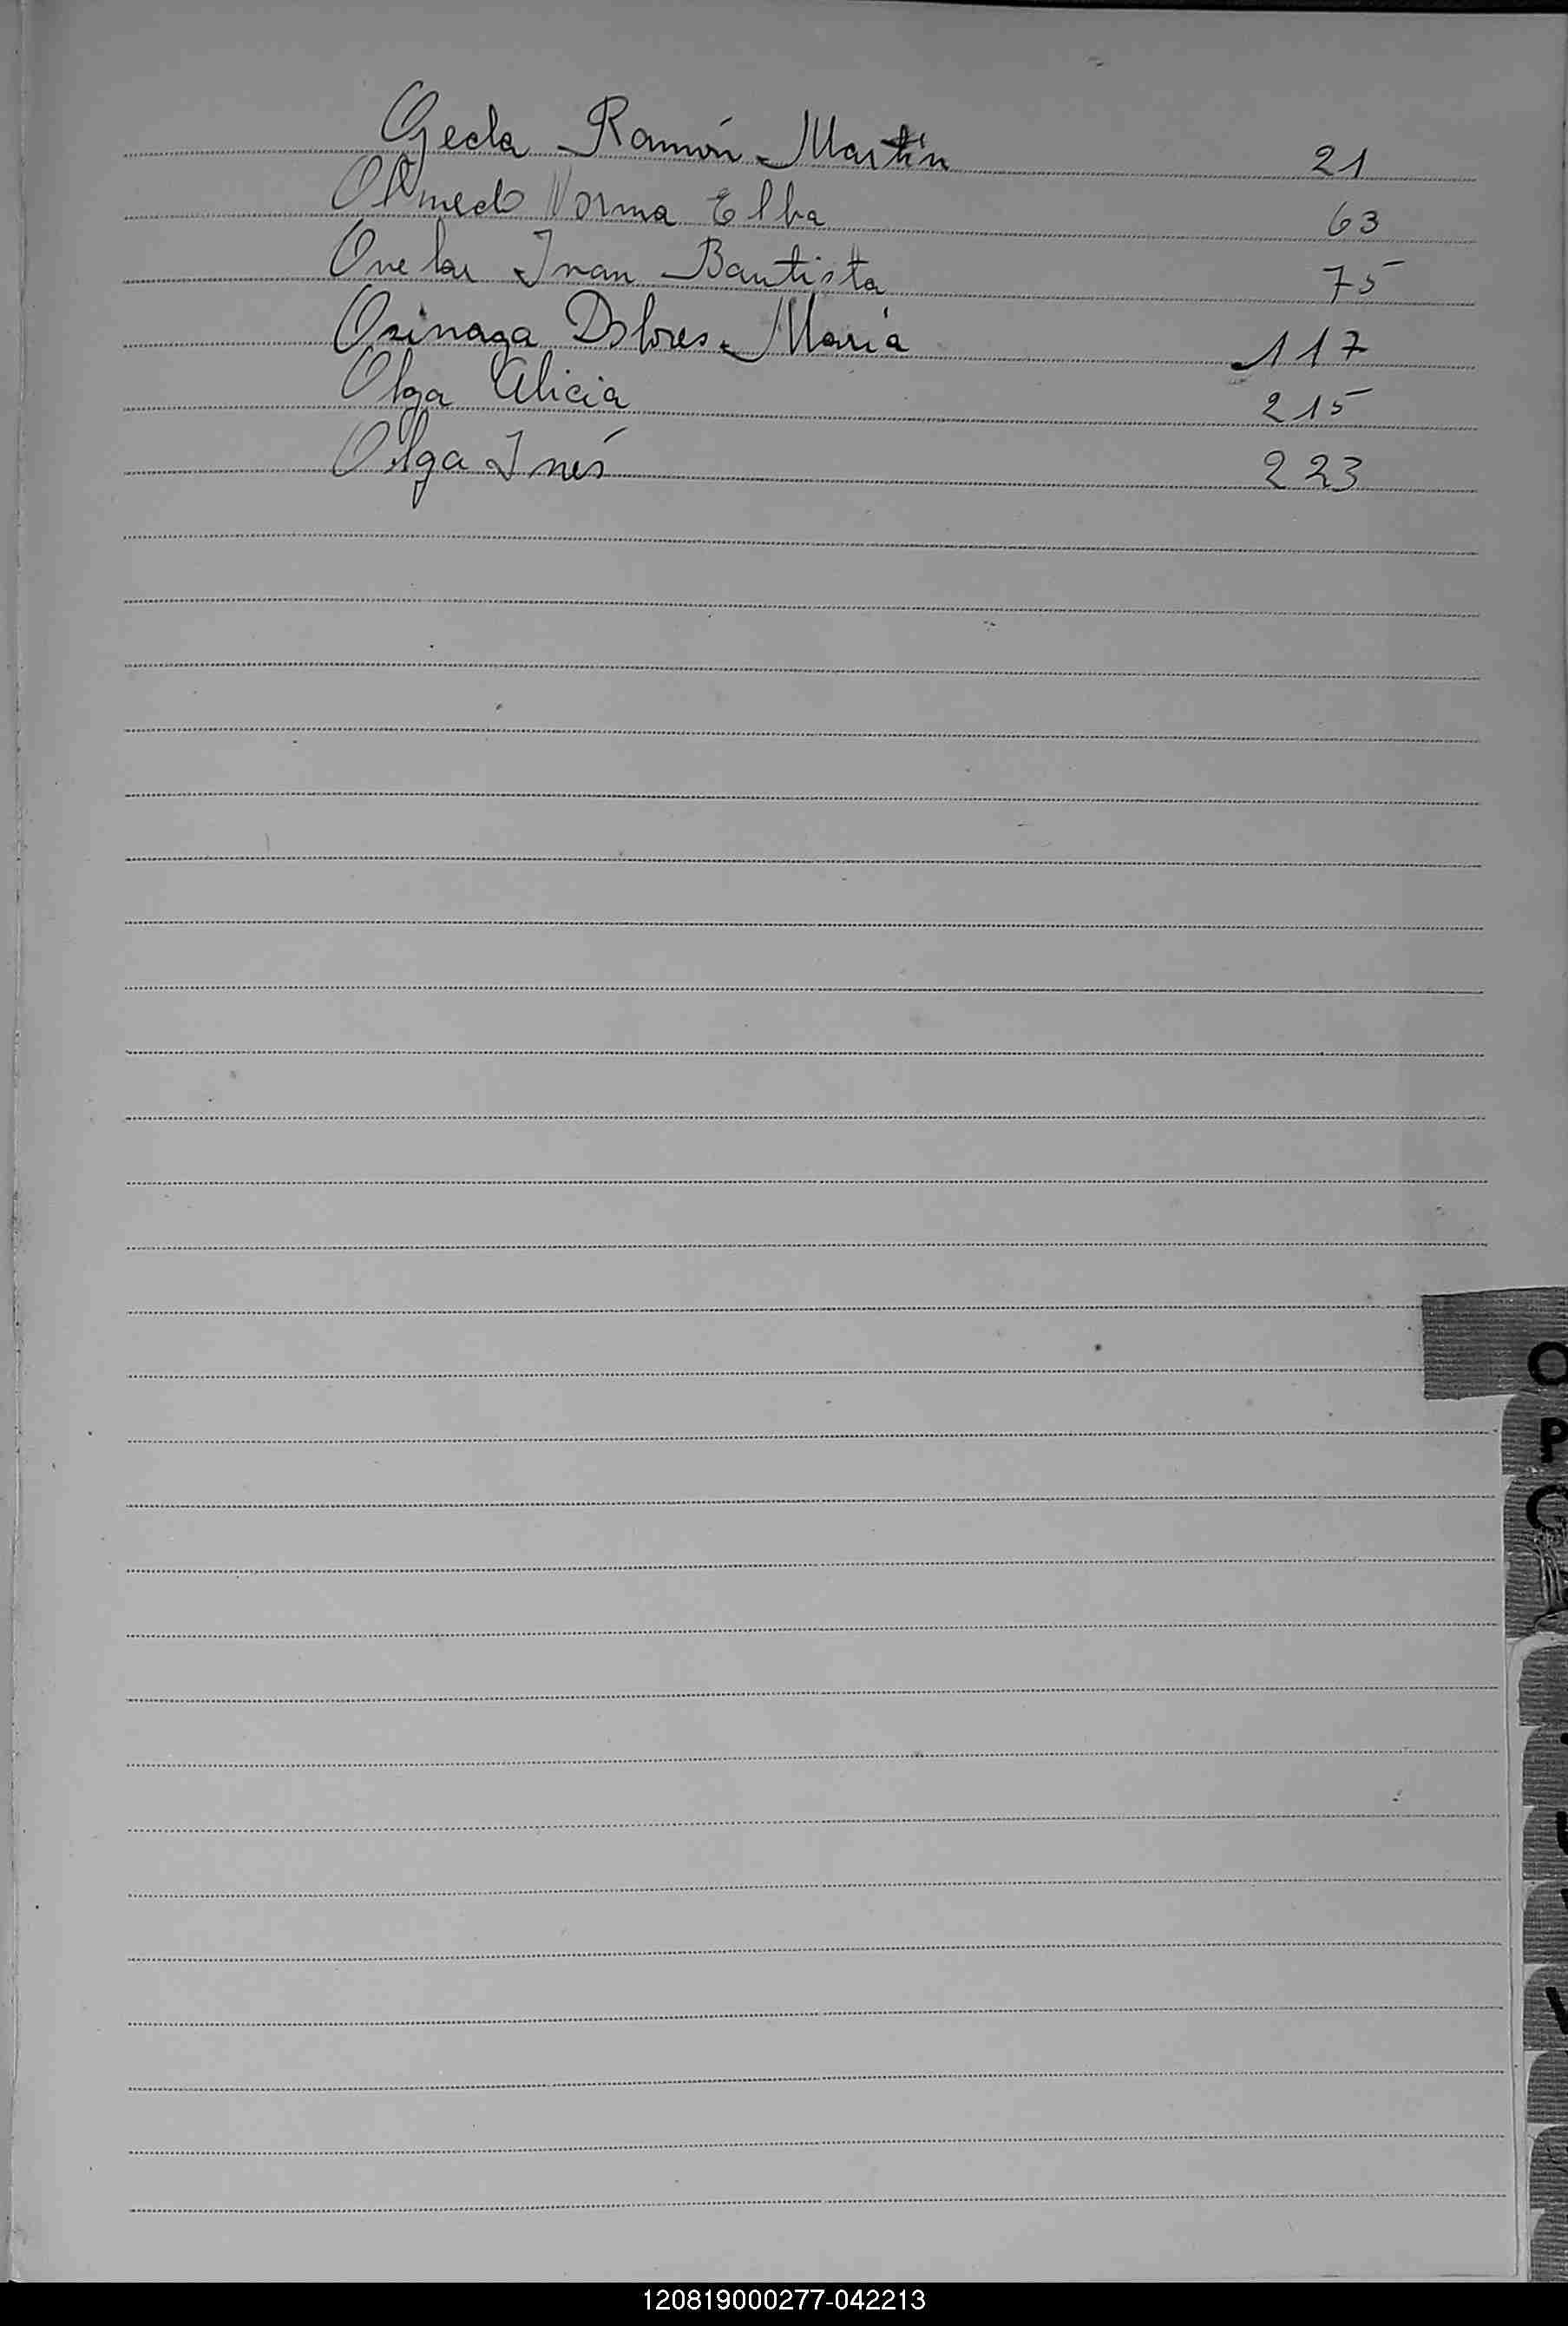 Ojeda Ramón Martín 21
Olmedo Norma Elba 63
Ovelar Juan Bautista 75
Osinaga Dolores María 117
Olga Alicia 215
Olga Inés 223
O
P
U
V
120819000277-042213